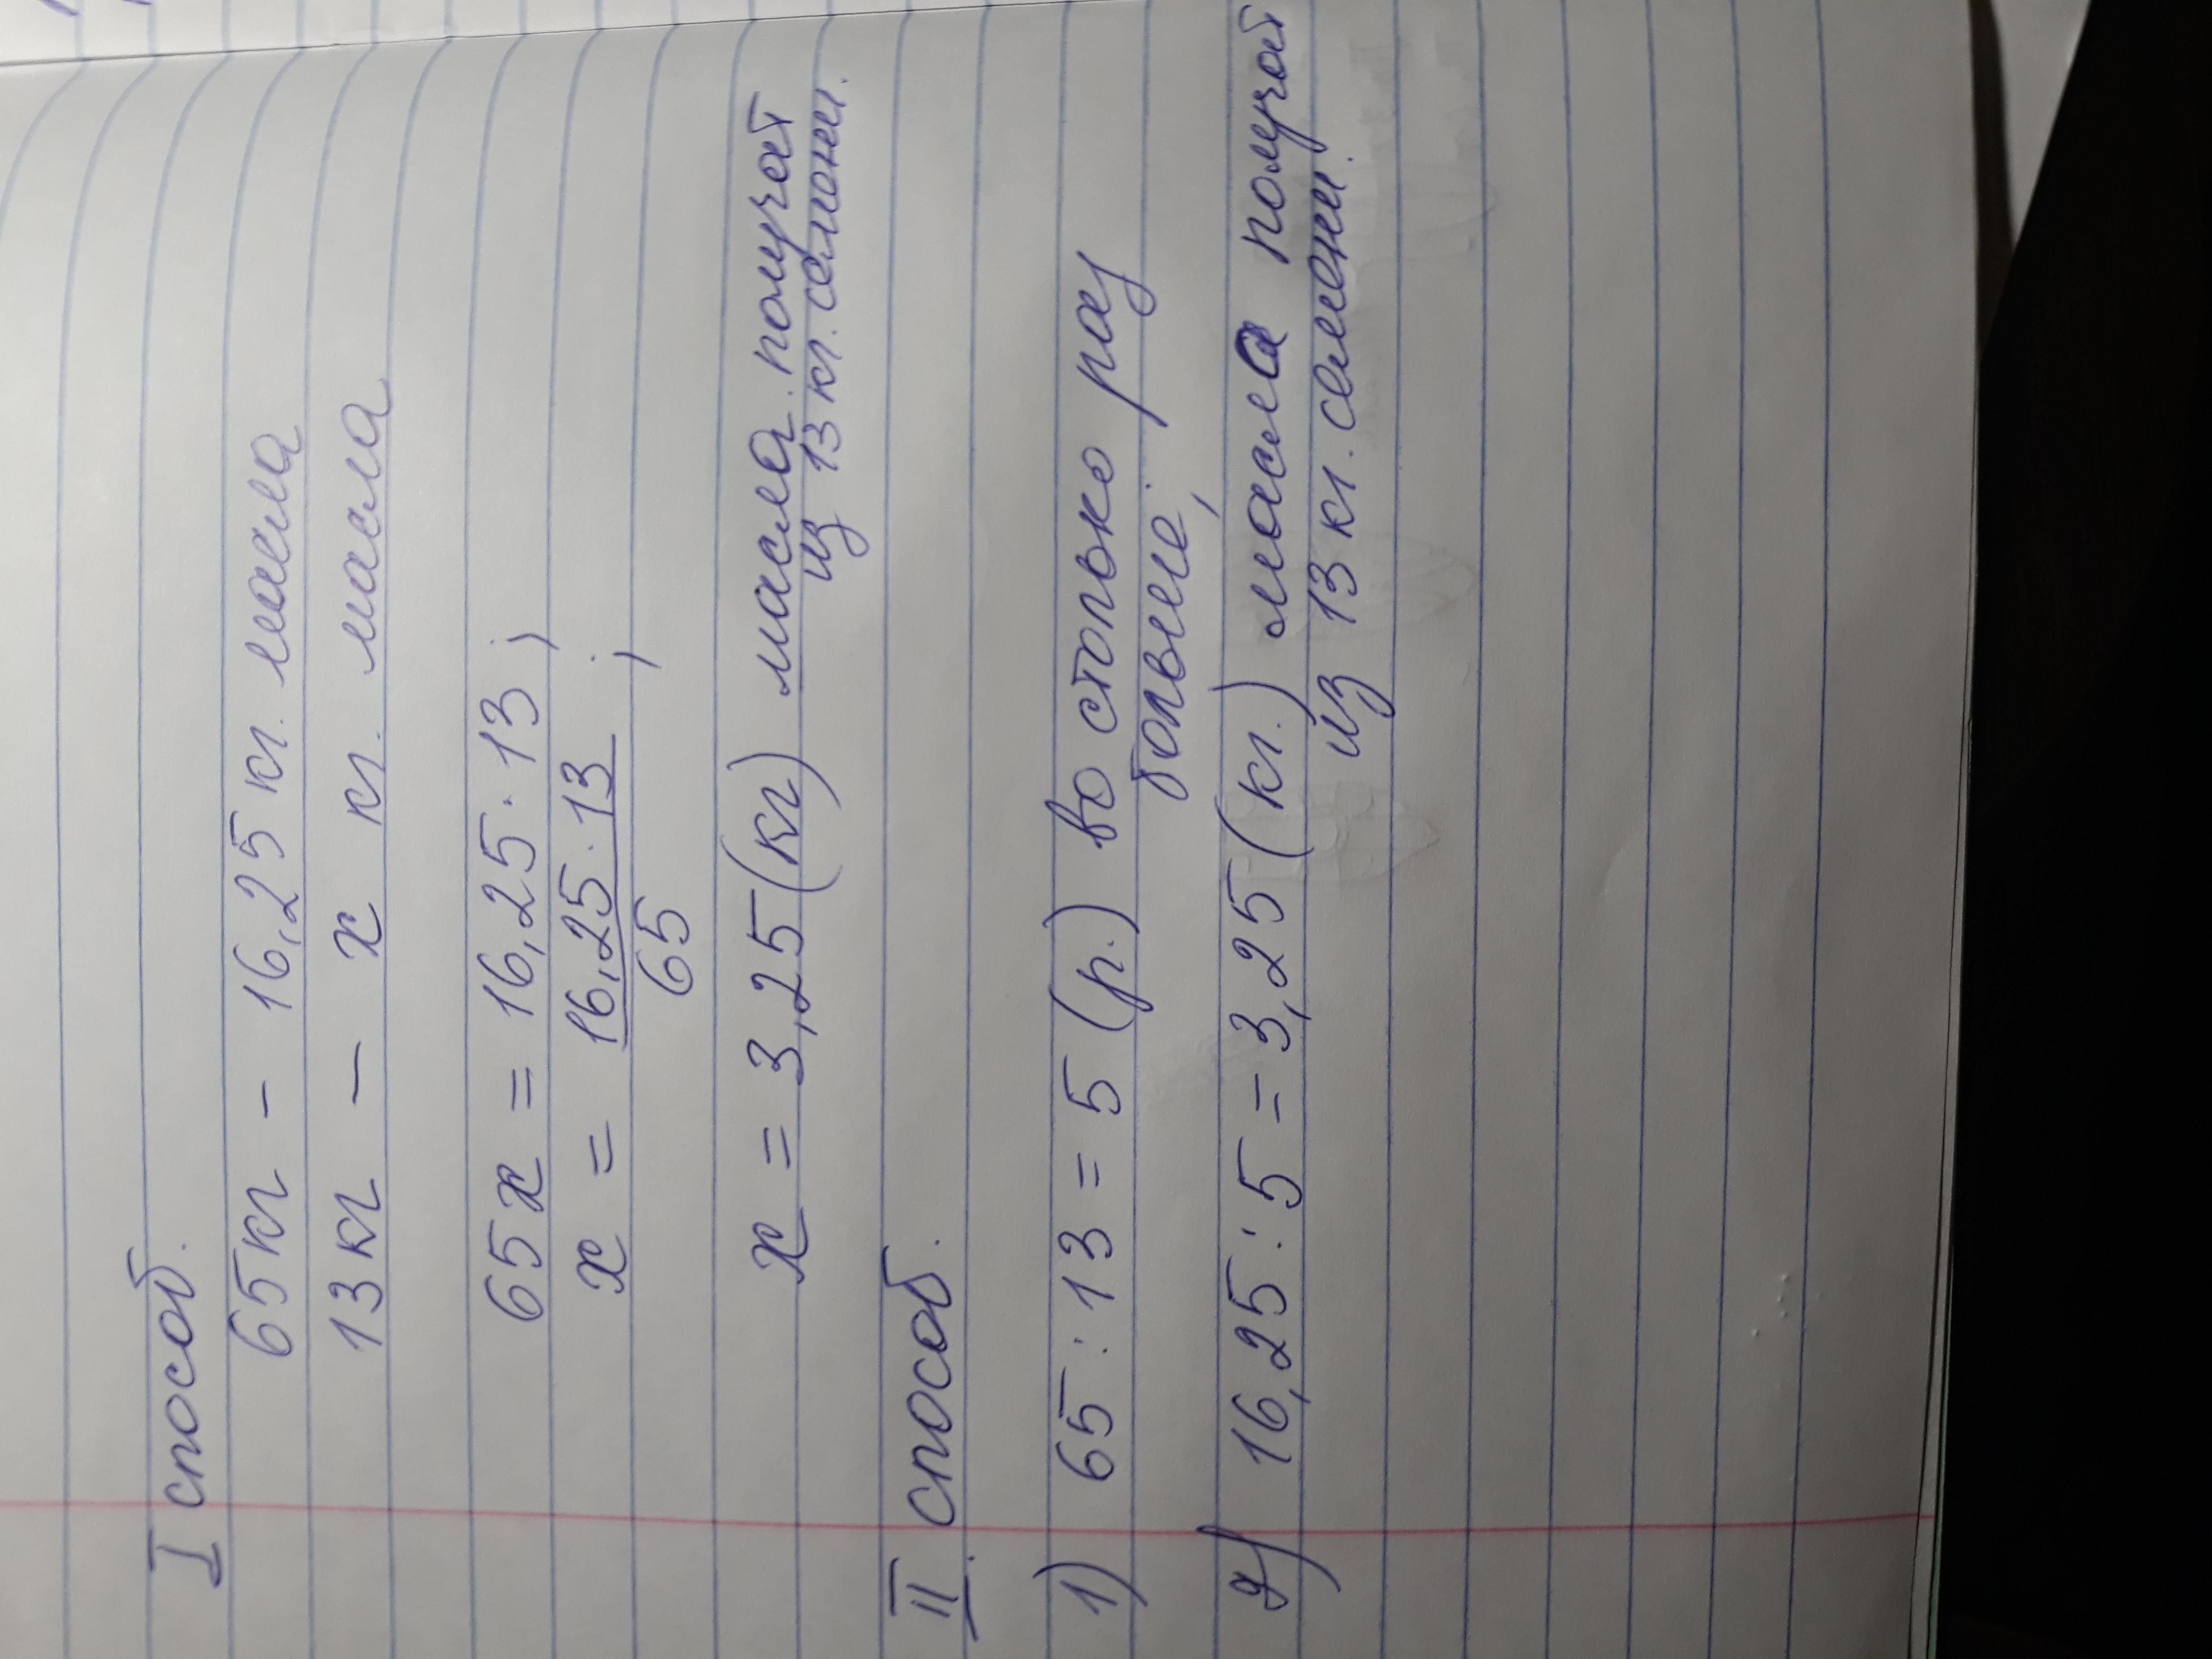 I способ.
65 кг - 16,25 кг. масла
13 кг - x кг. масла
65x = 16,25 · 13 ;
x = 16,25 · 13 ;
65
x = 3,25 (кг) масла. получат
из 13 кг. семени.
II. способ.
1) 65 : 13 = 5 (р.) во столько раз
больше;
2) 16,25 : 5 = 3,25 (кг.) масла получат
из 13 кг. семени.